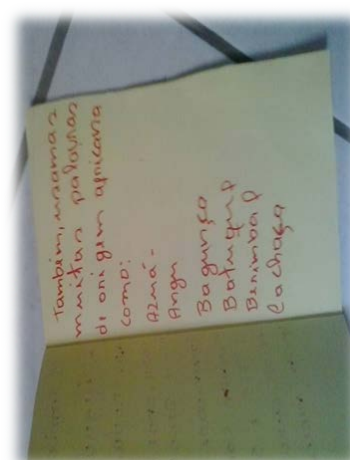 Também, usamos
muitas palavras
de origem africana
como:
Azná-
Angu
Bagunça
Batuque
Berimbal
Cachaça